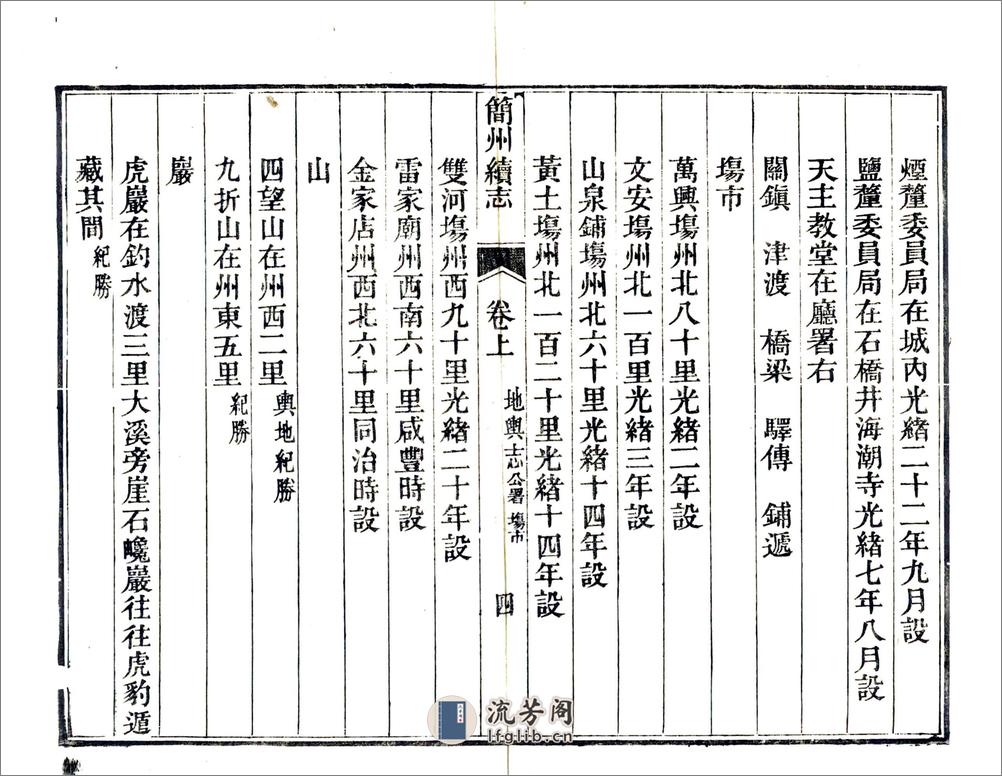 煙釐委員局在城內光緒二十二年九月設
鹽釐委員局在石橋井海潮寺光緒七年八月設
天主教堂在廳署右
關鎮 津渡 橋梁 驛傳 鋪遞
塲市
萬興塲州北八十里光緒二年設
文安塲州北一百里光緒三年設
山泉鋪塲州北六十里光緒十四年設
黃土塲州北一百二十里光緒十四年設
簡州續志 卷上 地輿志公署 塲市 四
雙河塲州西九十里光緒二十年設
雷家廟州西南六十里咸豐時設
金家店州西北六十里同治時設
山
四望山在州西二里輿地紀勝
九折山在州東五里紀勝
巖
虎巖在釣水渡三里大溪旁崖石巉巖往往虎豹遁
藏其間紀勝
流芳阁
lfglib.cn